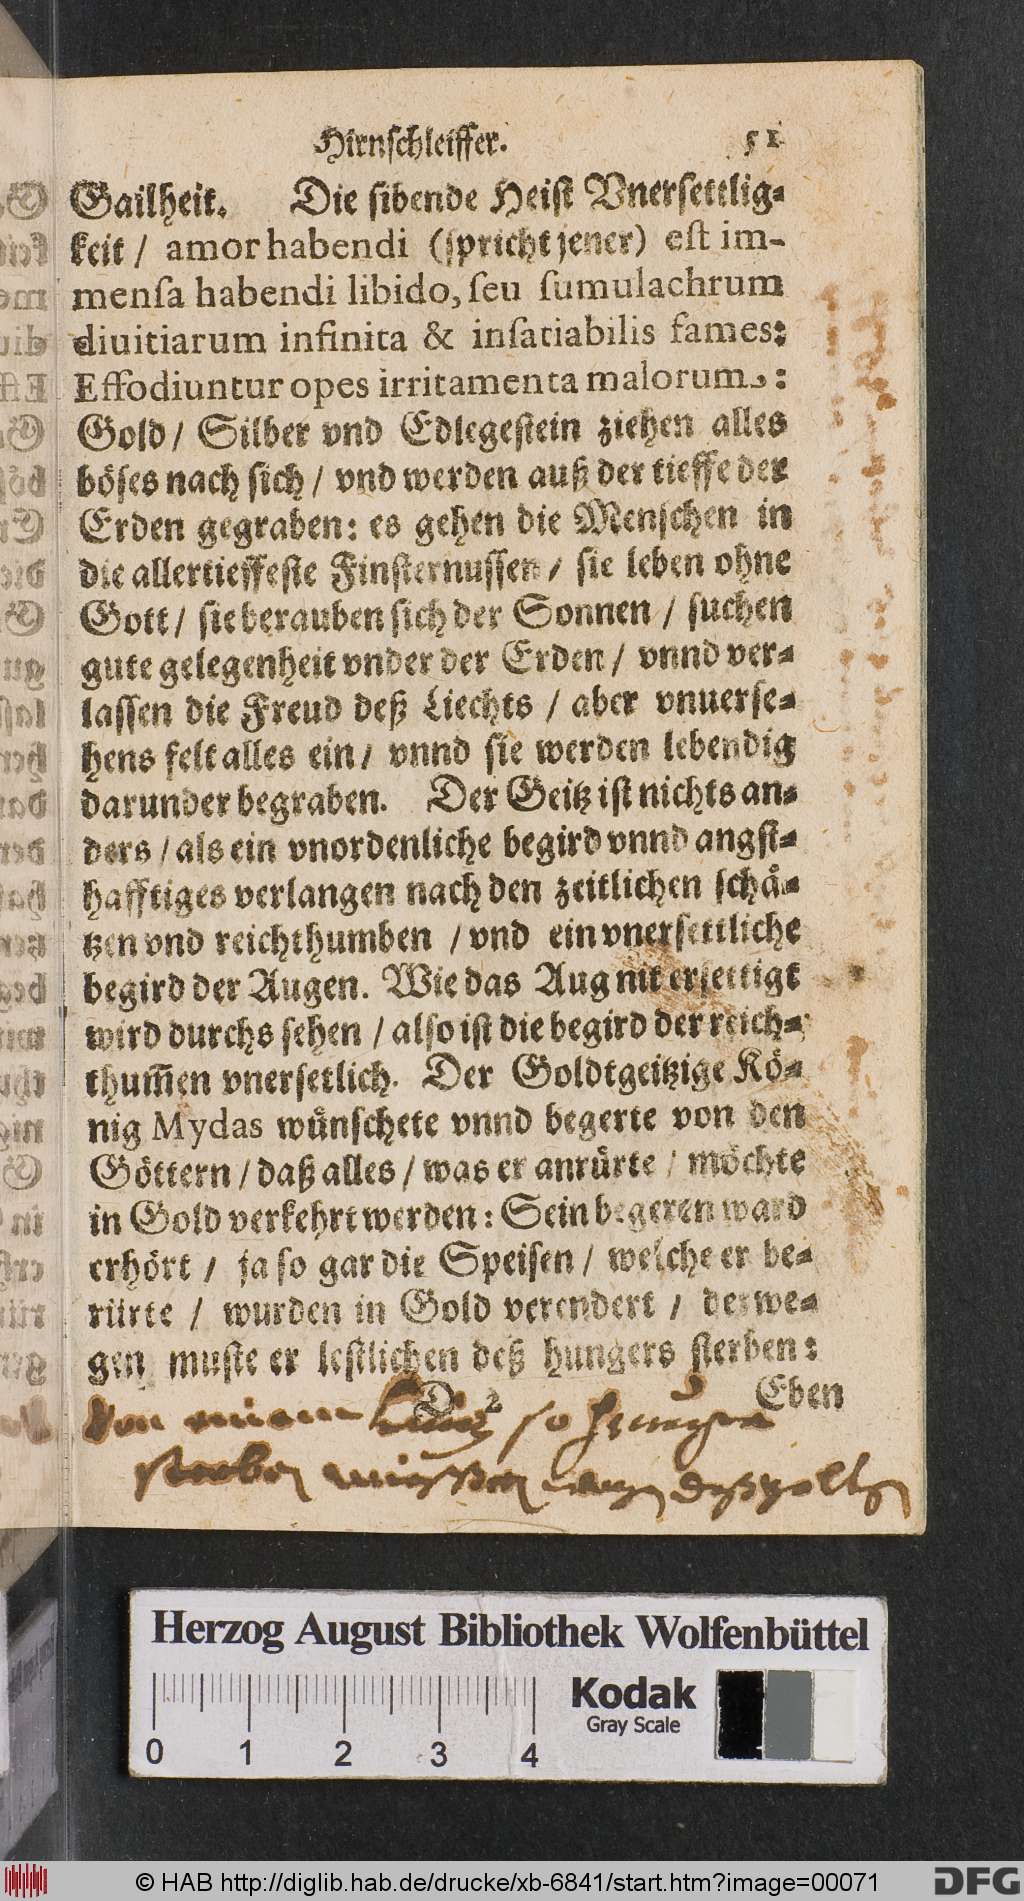 Hirnschleiffer. 51
Gailheit. Die sibende Heist Vnersettlig-
keit / amor habendi (spricht jener) est im-
mensa habendi libido, seu sumulachrum
diuitiarum infinita & insatiabilis fames:
Effodiuntur opes irritamenta malorum:
Gold / Silber vnd Edlegestein ziehen alles
böses nach sich / vnd werden auß der tieffe der
Erden gegraben: es gehen die Menschen in
die allertieffeste Finsternussen / sie leben ohne
Gott / sie berauben sich der Sonnen / suchen
gute gelegenheit vnder der Erden / vnnd ver-
lassen die Freud deß Liechts / aber vnuerse-
hens felt alles ein / vnnd sie werden lebendig
darunder begraben. Der Geitz ist nichts an-
ders / als ein vnordenliche begird vnnd angst-
hafftiges verlangen nach den zeitlichen schä-
tzen vnd reichthumben / vnd ein vnersettliche
begird der Augen. Wie das Aug nit ersettigt
wird durchs sehen / also ist die begird der reich-
thum̃en vnersetlich. Der Goldtgeitzige Kö-
nig Mydas wünschete vnnd begerte von den
Göttern / daß alles / was er anrürte / möchte
in Gold verkehrt werden: Sein begeren ward
erhört / ja so gar die Speisen / welche er be-
rürte / wurden in Gold verendert / deswe-
gen muste er lestlichen deß hungers sterben:
D 2 Eben
Von einem so
sterben
Herzog August Bibliothek Wolfenbüttel
Kodak
Gray Scale
0 1 2 3 4
© HAB http://diglib.hab.de/drucke/xb-6841/start.htm?image=00071
DFG